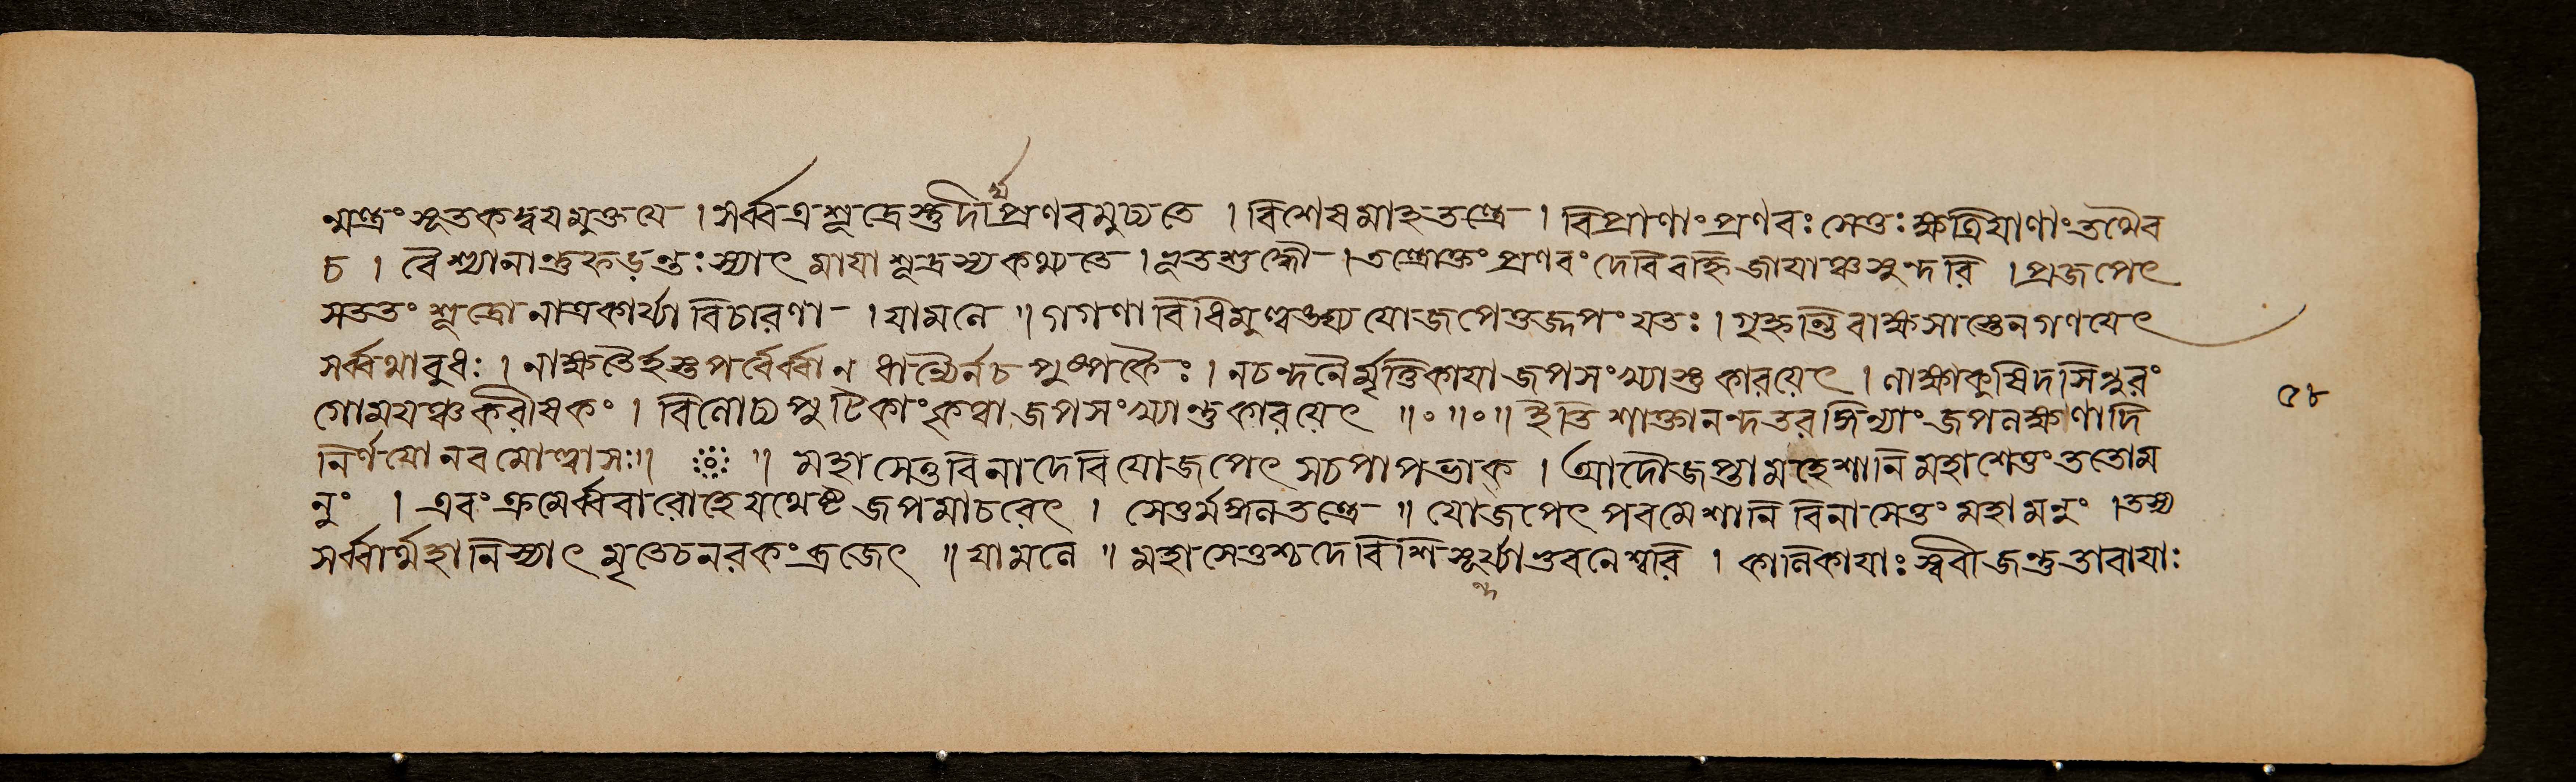 ন্মন্ত্রং সূতকদ্বয়মুক্তয়ে । সর্ব্বত্র শূদ্রে স্তু দীর্ঘপ্রণবমুচ্যতে । বিশেষমাহ তন্ত্রে । বিপ্রাণাং প্রণবঃ সেতুঃ ক্ষত্রিয়াণাং তথৈব
চ । বৈশ্যানান্তু ফড়ন্তঃ স্যাৎ মায়া শূদ্রস্য কথ্যতে । তন্ত্রোক্তং প্রণবং দেবি বহ্নিজায়াঞ্চ সুন্দরি । প্রজপেৎ
সততং শূদ্রো নাত্র কার্য্যা বিচারণা । যামলে ॥ গণনাবিধিমুল্লঙ্ঘ্য যো জপেত্তজ্জপং যতঃ । গৃহ্নন্তি রাক্ষসাস্তেন গণয়েৎ
সর্ব্বথা বুধঃ । নাক্ষতৈর্হস্তপর্ব্বৈর্ব্বা ন ধান্যৈর্নচ পুষ্পকৈঃ । ন চন্দনৈর্মৃত্তিকায়া জপসংখ্যান্তু কারয়েৎ । লাক্ষাকুসিদসিন্দুরং
গোময়ঞ্চ করীষকং । বিলোড্য পুটিকাং কৃত্বা জপসংখ্যান্তু কারয়েৎ ॥০॥০॥ ইতি শাক্তানন্দতরঙ্গিণ্যাং জপলক্ষণাদি
নির্ণয়ো নবমোল্লাসঃ॥ ॥ মহাসেতু বিনা দেবি যো জপেৎ স চ পাপভাক্ । আদৌ জপ্ত্বা মহেশানি মহাশেতুং ততো ম
নুং । এবং ক্রমের্ব্বরারোহে যথেষ্ট জপমাচরেৎ । সেতুর্মঙ্গলতন্ত্রে ॥ যো জপেৎ পরমেশানি বিনা সেতুং মহামনুং । তস্য
সর্ব্বার্থহানি স্যাৎ মৃতে চ নরকং ব্রজেৎ ॥ যামলে ॥ মহাসেতুশ্চ দেবিশি সুন্দর্য্যা ভুবনেশ্বরি । কালিকায়াঃ স্ববীজন্তু তারায়াঃ
৫৮